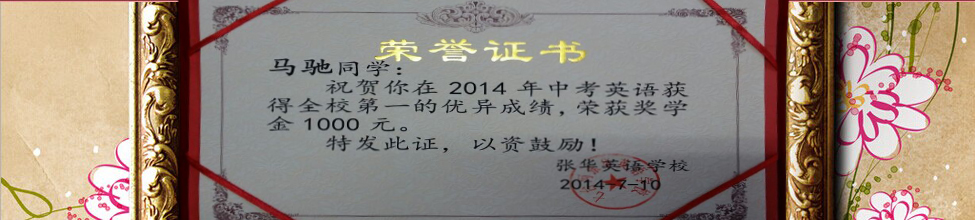 荣誉证书
马驰同学：
祝贺你在 2014 年中考英语获
得全校第一的优异成绩，荣获奖学
金 1000 元。
特发此证，以资鼓励！
张华英语学校
2014-7-10